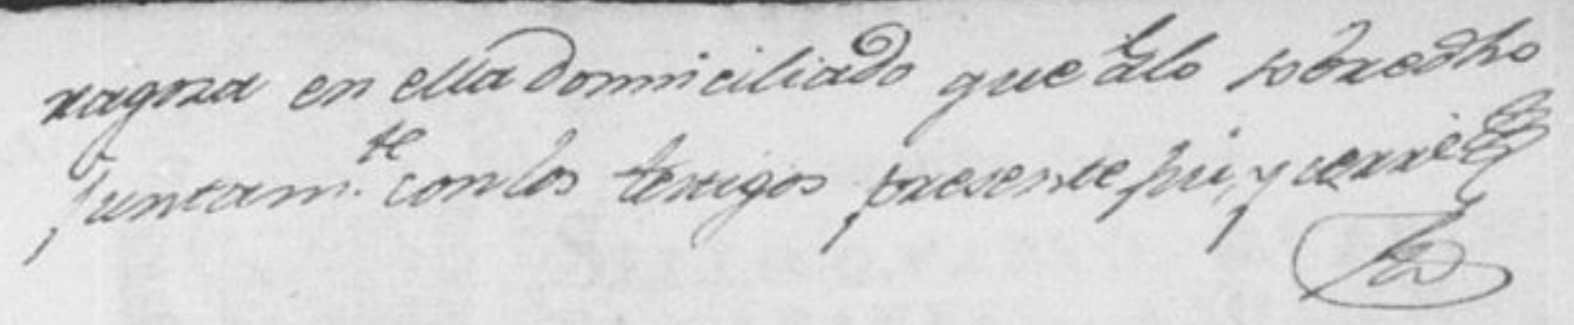 ragoza en ella domiciliado que â lo sobredho
juntam.te con los testigos presente fui, y cerré